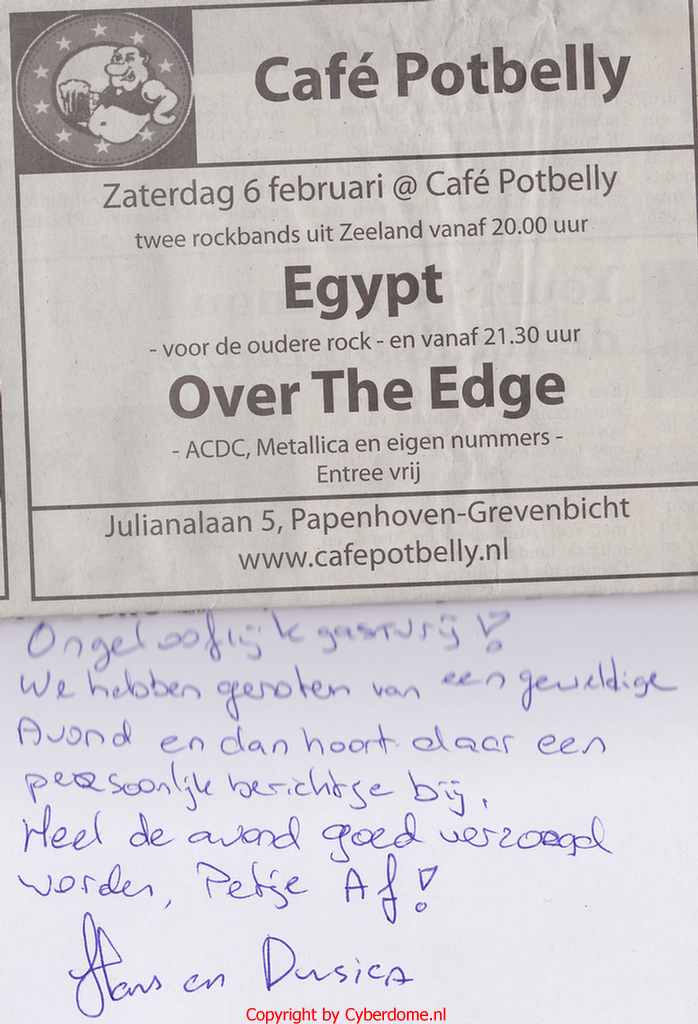 Café Potbelly
Zaterdag 6 februari @ Café Potbelly
twee rockbands uit Zeeland vanaf 20.00 uur
Egypt
- voor de oudere rock - en vanaf 21.30 uur
Over The Edge
- ACDC, Metallica en eigen nummers -
Entree vrij
Julianalaan 5, Papenhoven-Grevenbicht
www.cafepotbelly.nl
Ongelooflijk gastvrij!
We hebben genoten van een geweldige
Avond en dan hoort daar een
persoonlijk berichtje bij.
Heel de avond goed verzorgd
worden, Petje Af!
Hans en
Copyright by Cyberdome.nl